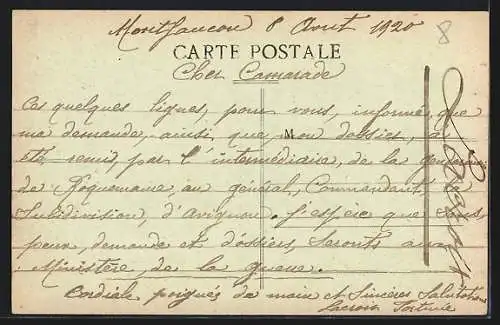 Montfaucon 8 Aout 1920
8
CARTE POSTALE
Cher Camarade
Ces quelques lignes, pour vous, informé, que
ma demande, ainsi, que, mon dossier, a
M
été, remis, par l'intermédiaire, de la
de Roquemaure, au général, Commandant, la
Subdivision, d'Avignon. J'espère que sous
peux, demande et dossiers, seronts aux
Ministère de la guerre.
Cordiale poignés de main et Sincères Salutations
Lacroix